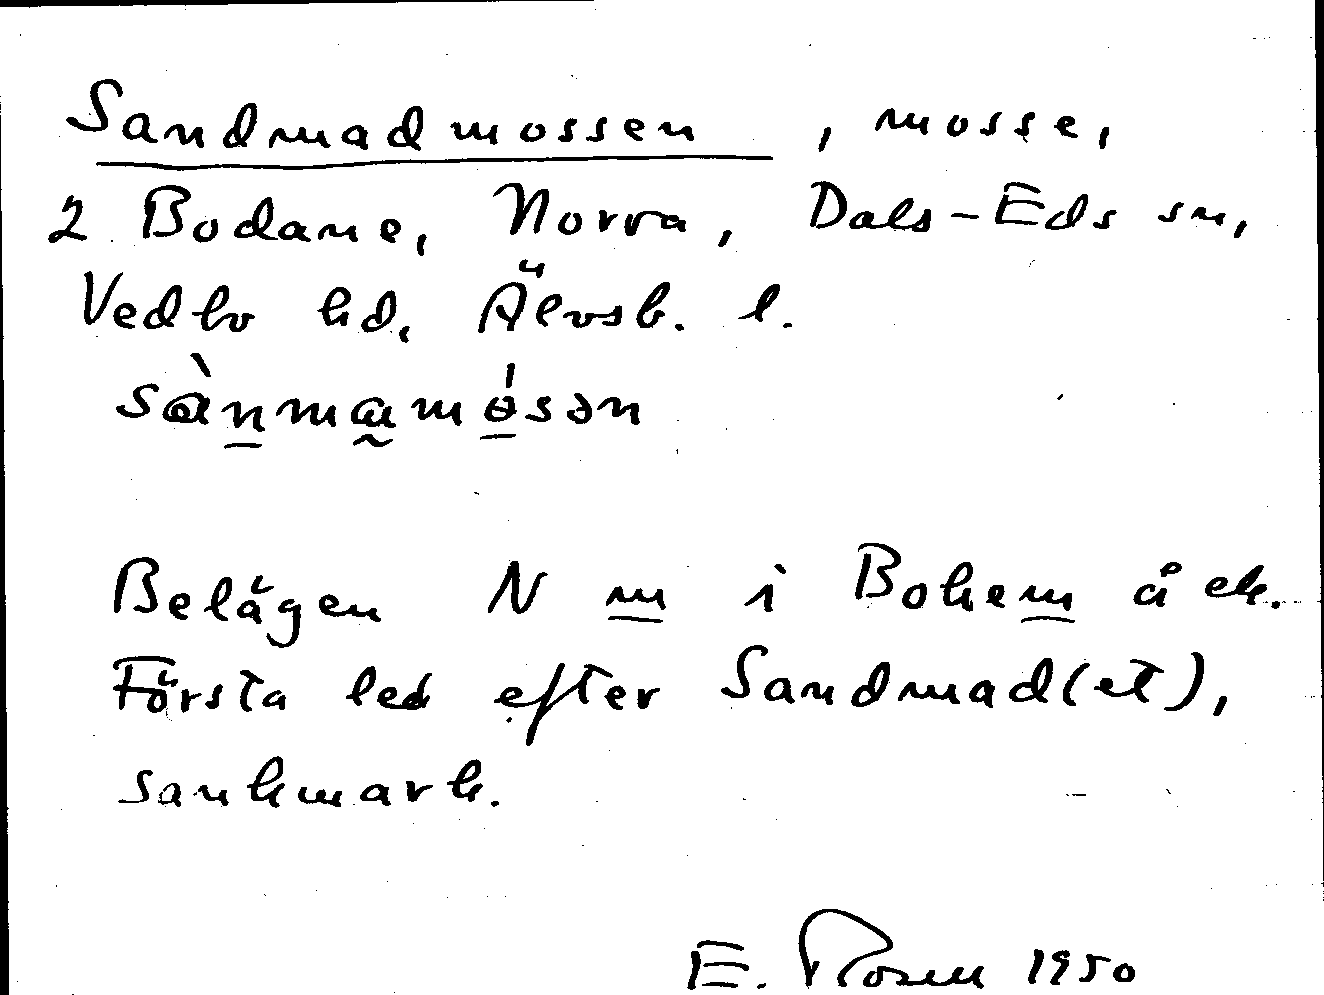 Sandmadmossen, mosse,
2 Bodane, Norra, Dals-Eds sn,
Vedbo hd, Älvsb. l.
sànmamósən
Belägen N m i Bohem å ek.
Första led efter Sandmad(et),
sankmark.
E. Rosen 1950